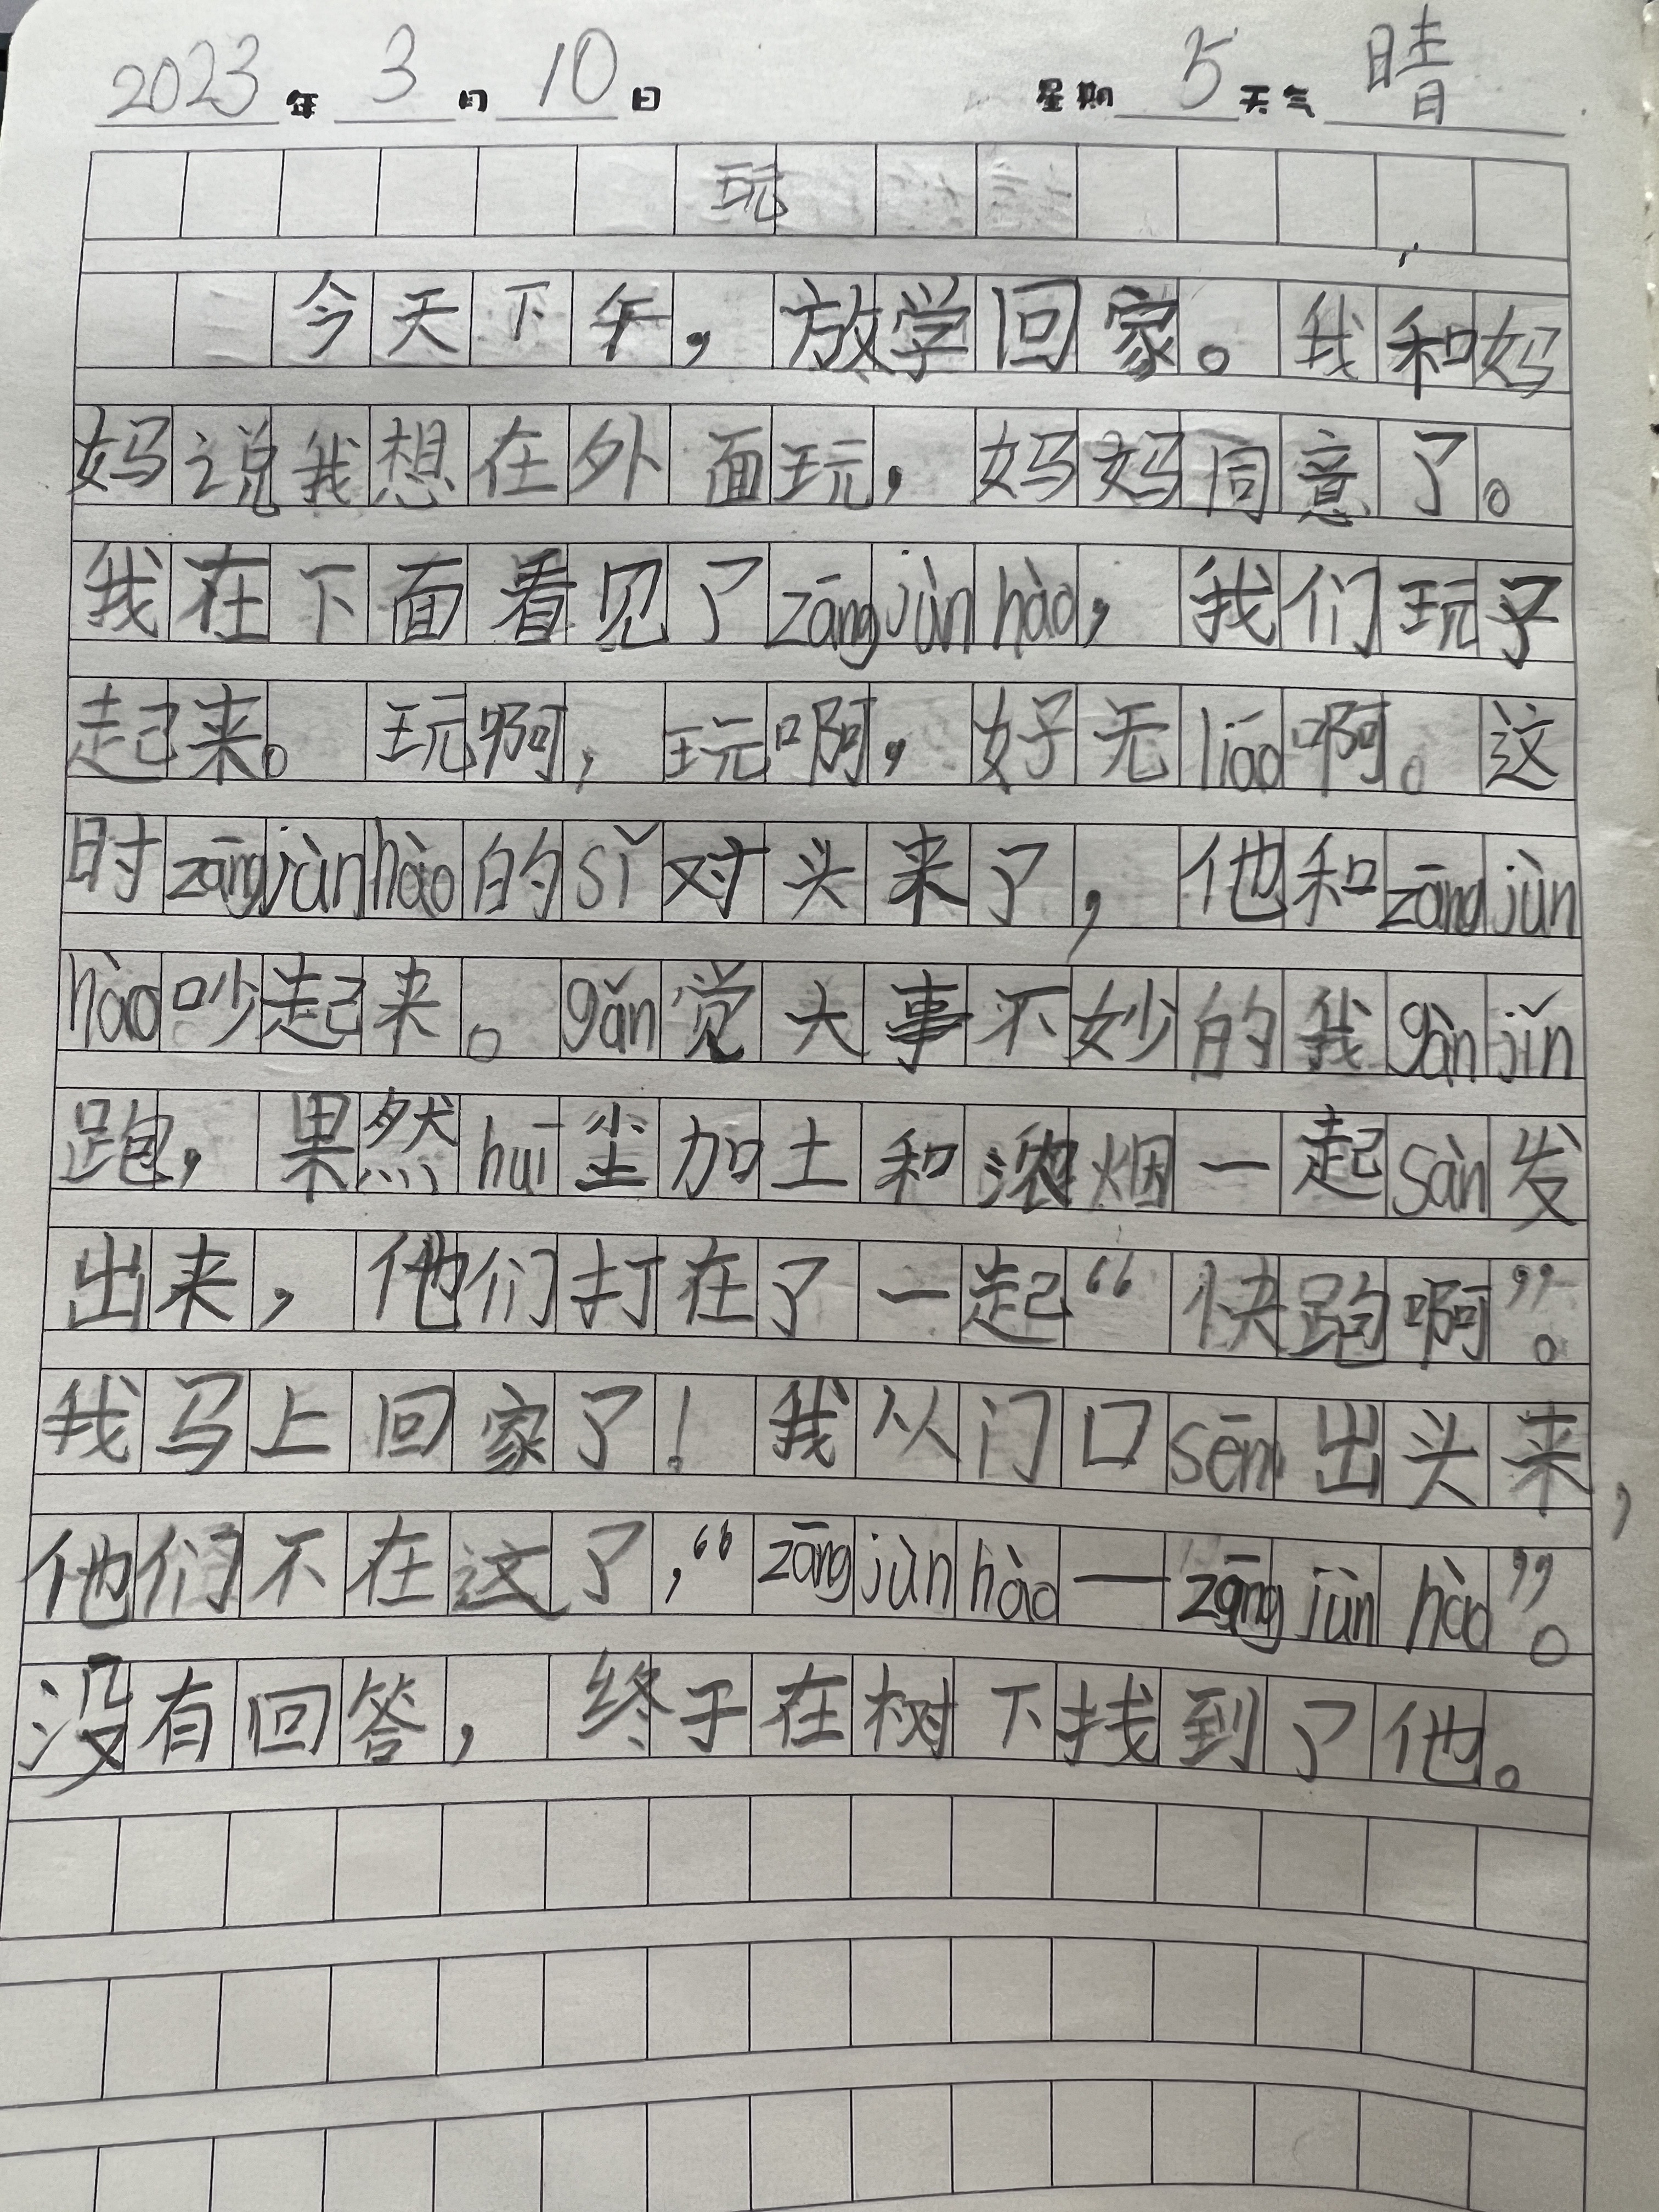 2023年3月10日 星期5天气晴
玩
今天下午，放学回家。我和妈
妈说我想在外面玩，妈妈同意了。
我在下面看见了zāng jùn hào，我们玩了
起来。玩啊，玩啊，好无liáo啊。这
时zāng jùn hào的sǐ对头来了，他和zāng jùn
hào吵起来。gǎn觉大事不妙的我gàn jǐn
跑，果然huī尘加土和浓烟一起sàn发
出来，他们打在了一起“快跑啊”。
我马上回家了！我从门口sēn出头来，
他们不在这了，“zāng jùn hào—zāng jùn hào”。
没有回答，终于在树下找到了他。